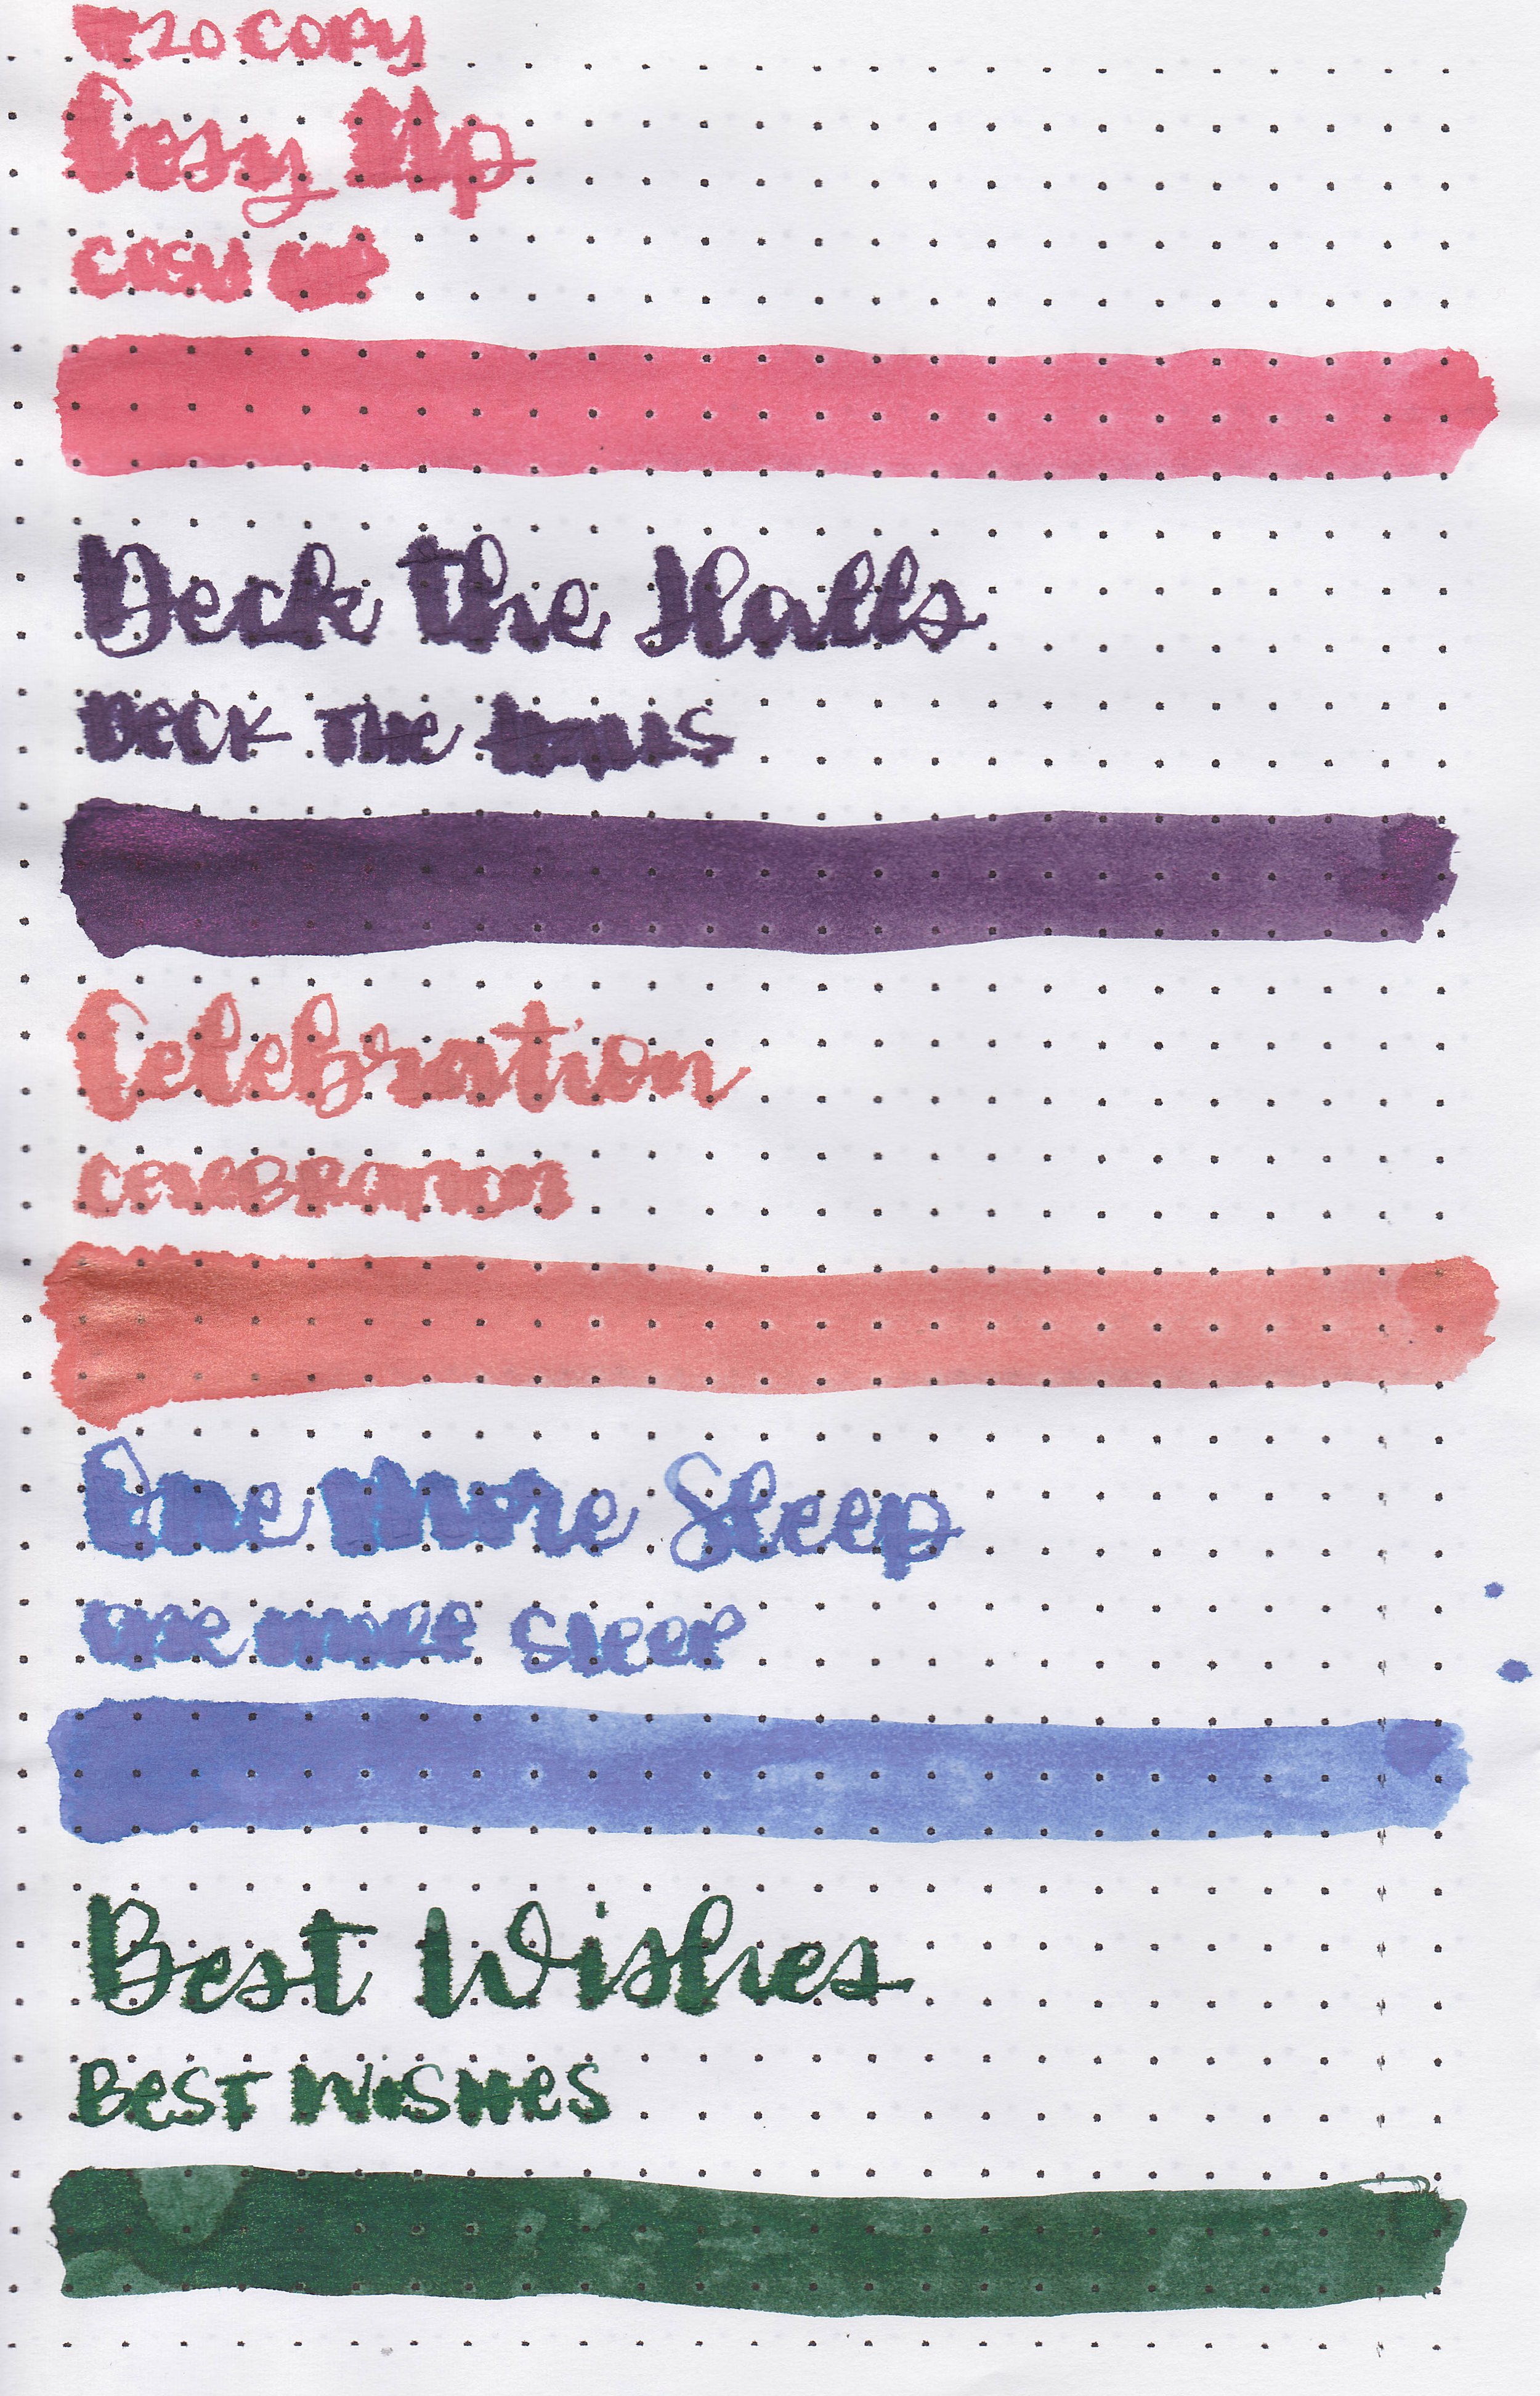 #20 COPY
Cosy Up
COSY UP
Deck the Halls
DeCK THe HALLS
Celebration
CeLeBRATION
One More Sleep
ONe MORe SLeeP
Best Wishes
BeST WISHeS